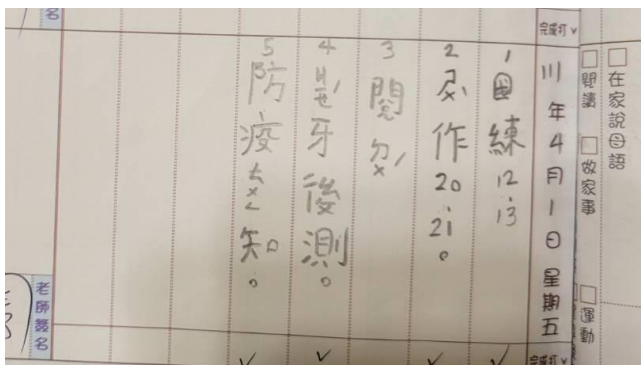 在家說母語
閱讀 做家事 運動
完成打 ˅
111年4月1日星期五
1國練12.13
2ㄍㄨˊ作20.21。
3閱
4 牙後測。
5防疫ㄊㄨㄥ知。
老師簽名
名
完成打 ˅